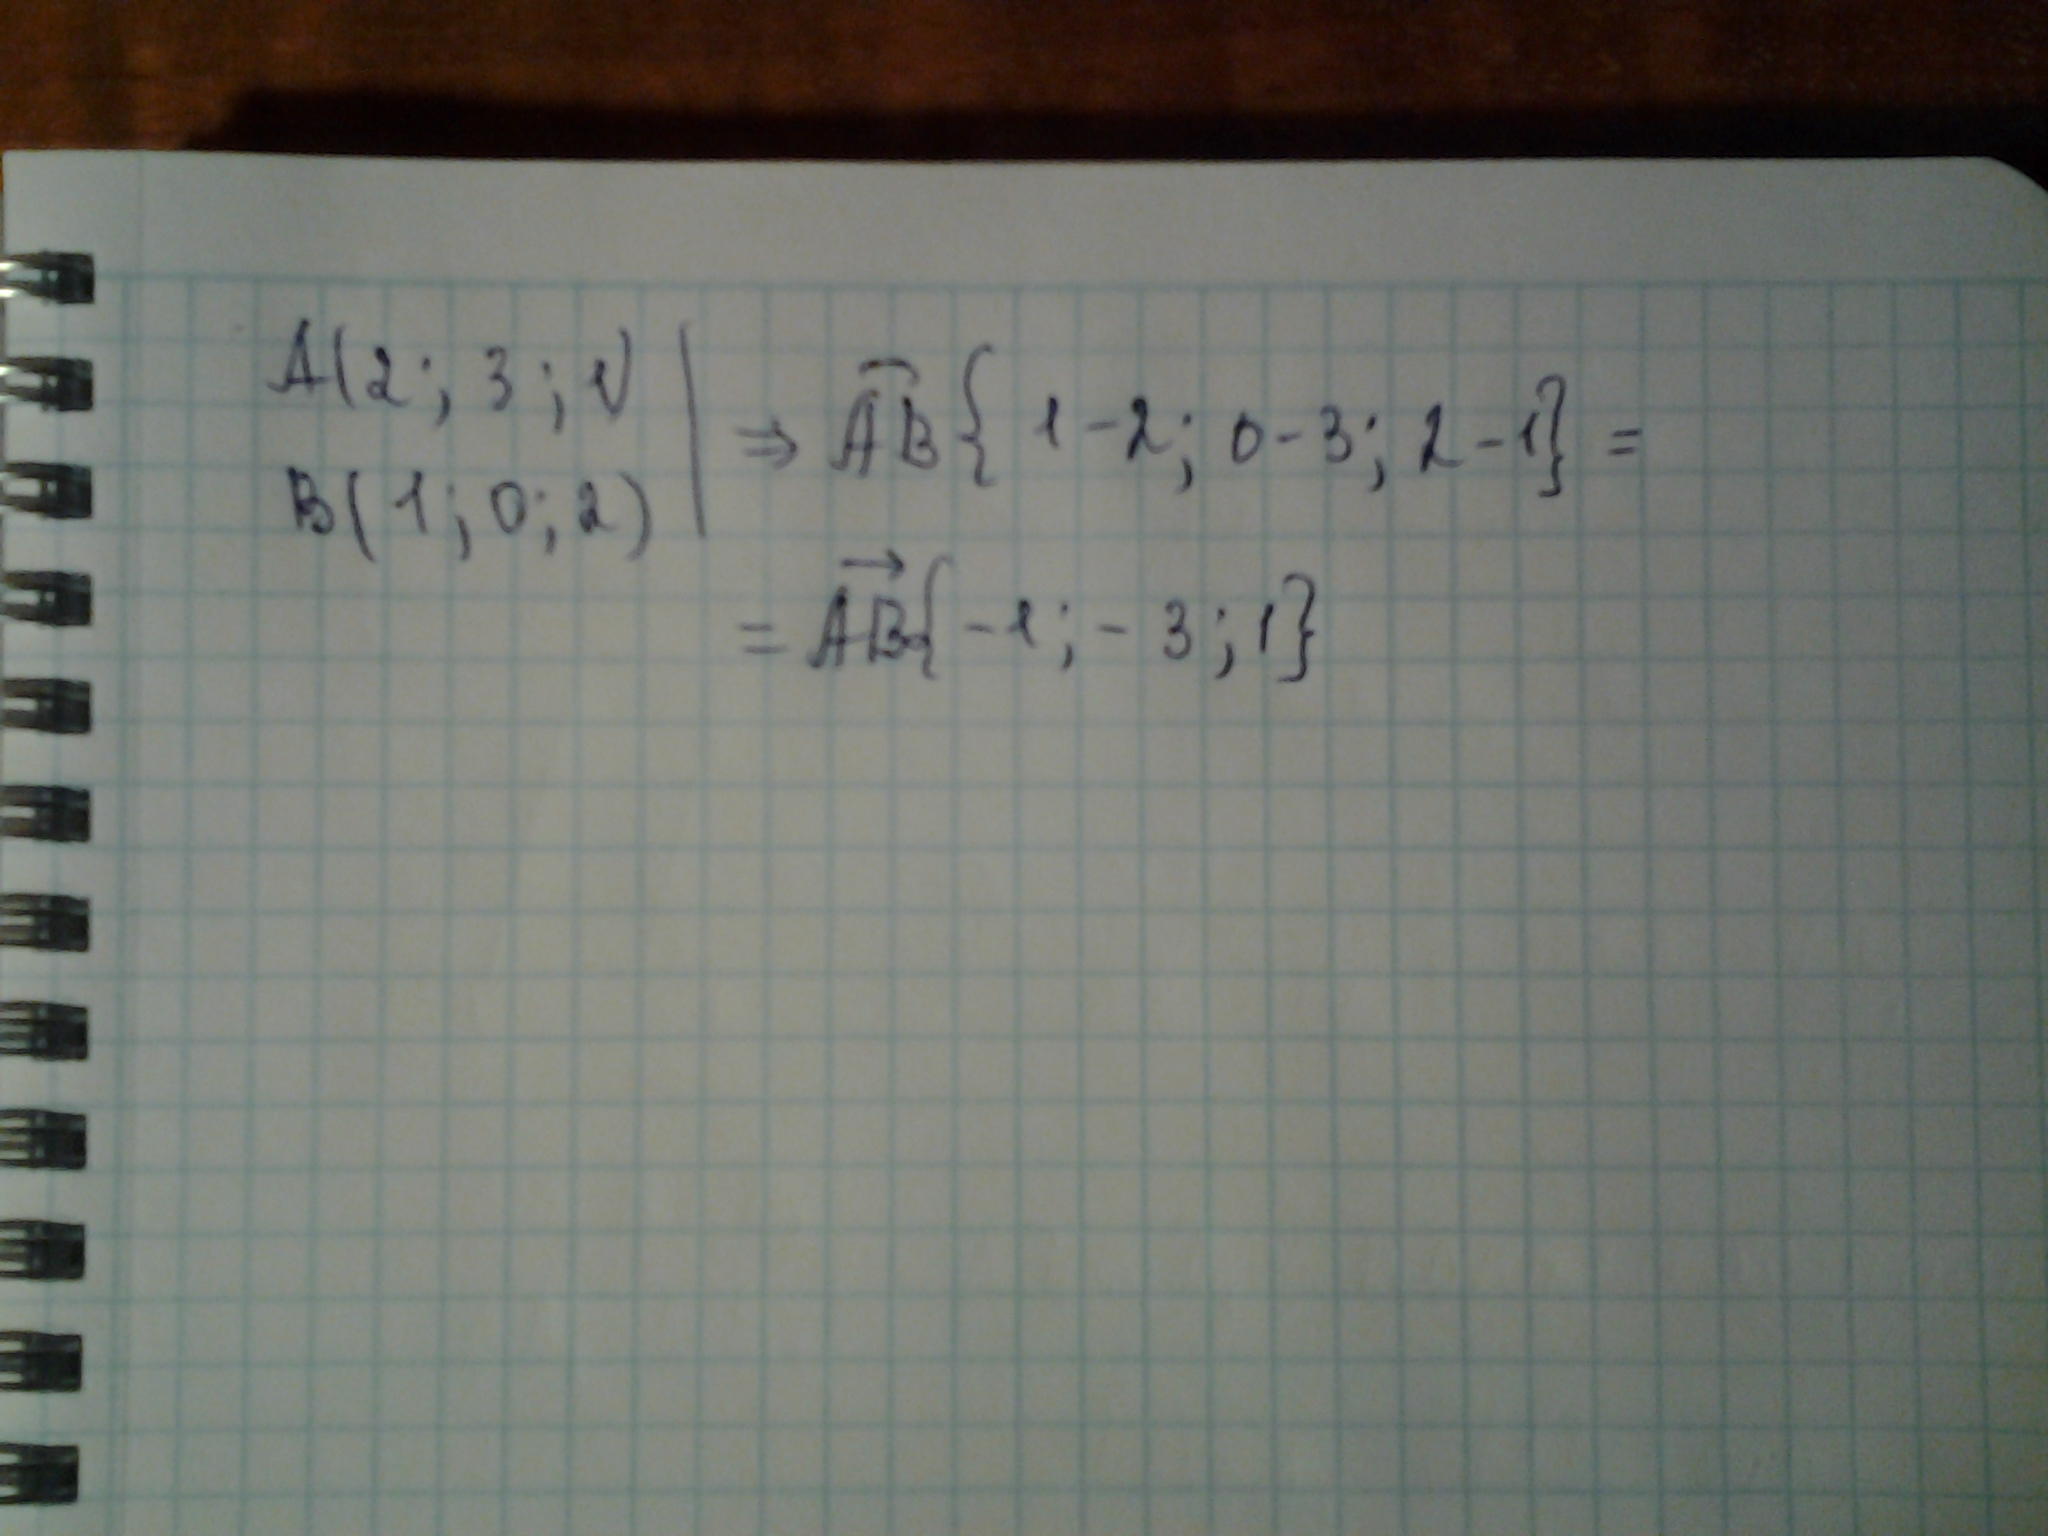 A(2; 3; 1)
B(1; 0; 2)
⇒ AB{1-2; 0-3; 2-1} =
= AB{-1; -3; 1}